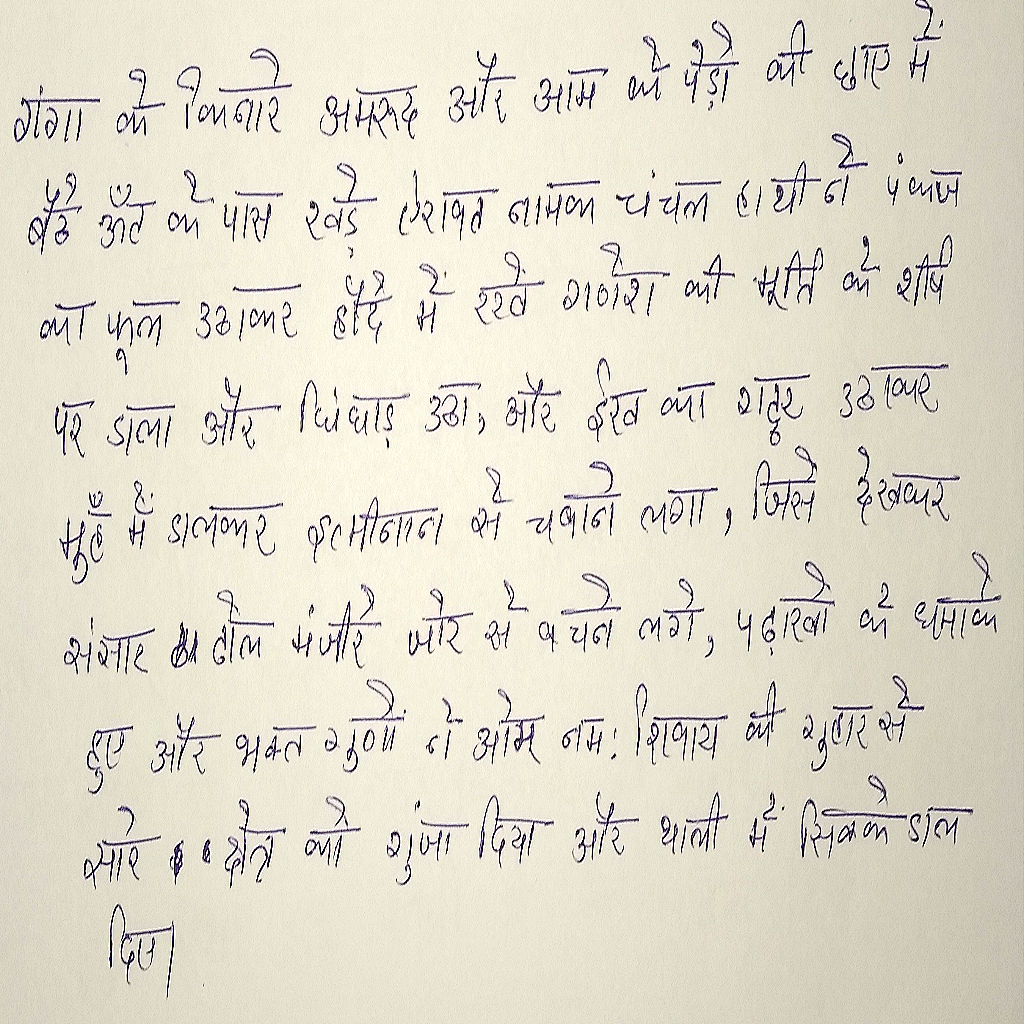 गंगा के किनारे अमरूद और आम के पेड़ो की छाए में
बैठे ऊँट के पास खड़े ऐरावत नामक चंचल हाथी ने पंकज
का फूल उठाकर हौदे में रखे गणेश की मूर्ति के शीर्ष
पर डाला और चिंघाड़ उठा, और ईख का गट्ठर उठाकर
मुहँ में डालकर इत्मीनान से चबाने लगा, जिसे देखकर
संसार ढोल मंजीरे जोर से बचने लगे, पढ़ाखो के धमाके
हुए और भक्त गुणों ने ओम नम: शिवाय की गुहार से
सारे क्षेत्र को गुंजा दिया और थाली में सिक्के डाल
दिए।